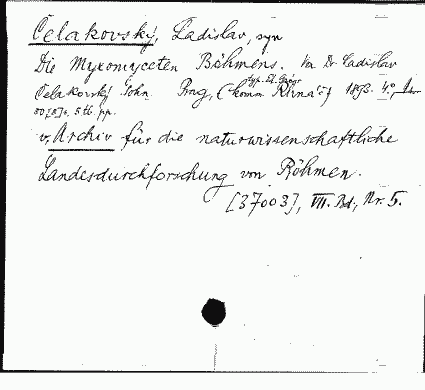 Čelakovský, Ladislav, syn
Die Myxomyceten Böhmens. Von Dr. Ladislav
Čelakovský Sohn. Prag, (komm. Řivnáč) 1893. 4°,
5 tb. pp.
v. Archiv für die naturwissenschaftliche
Landesdurchforschung von Böhmen.
[37003], VII. Bd., Nr. 5.